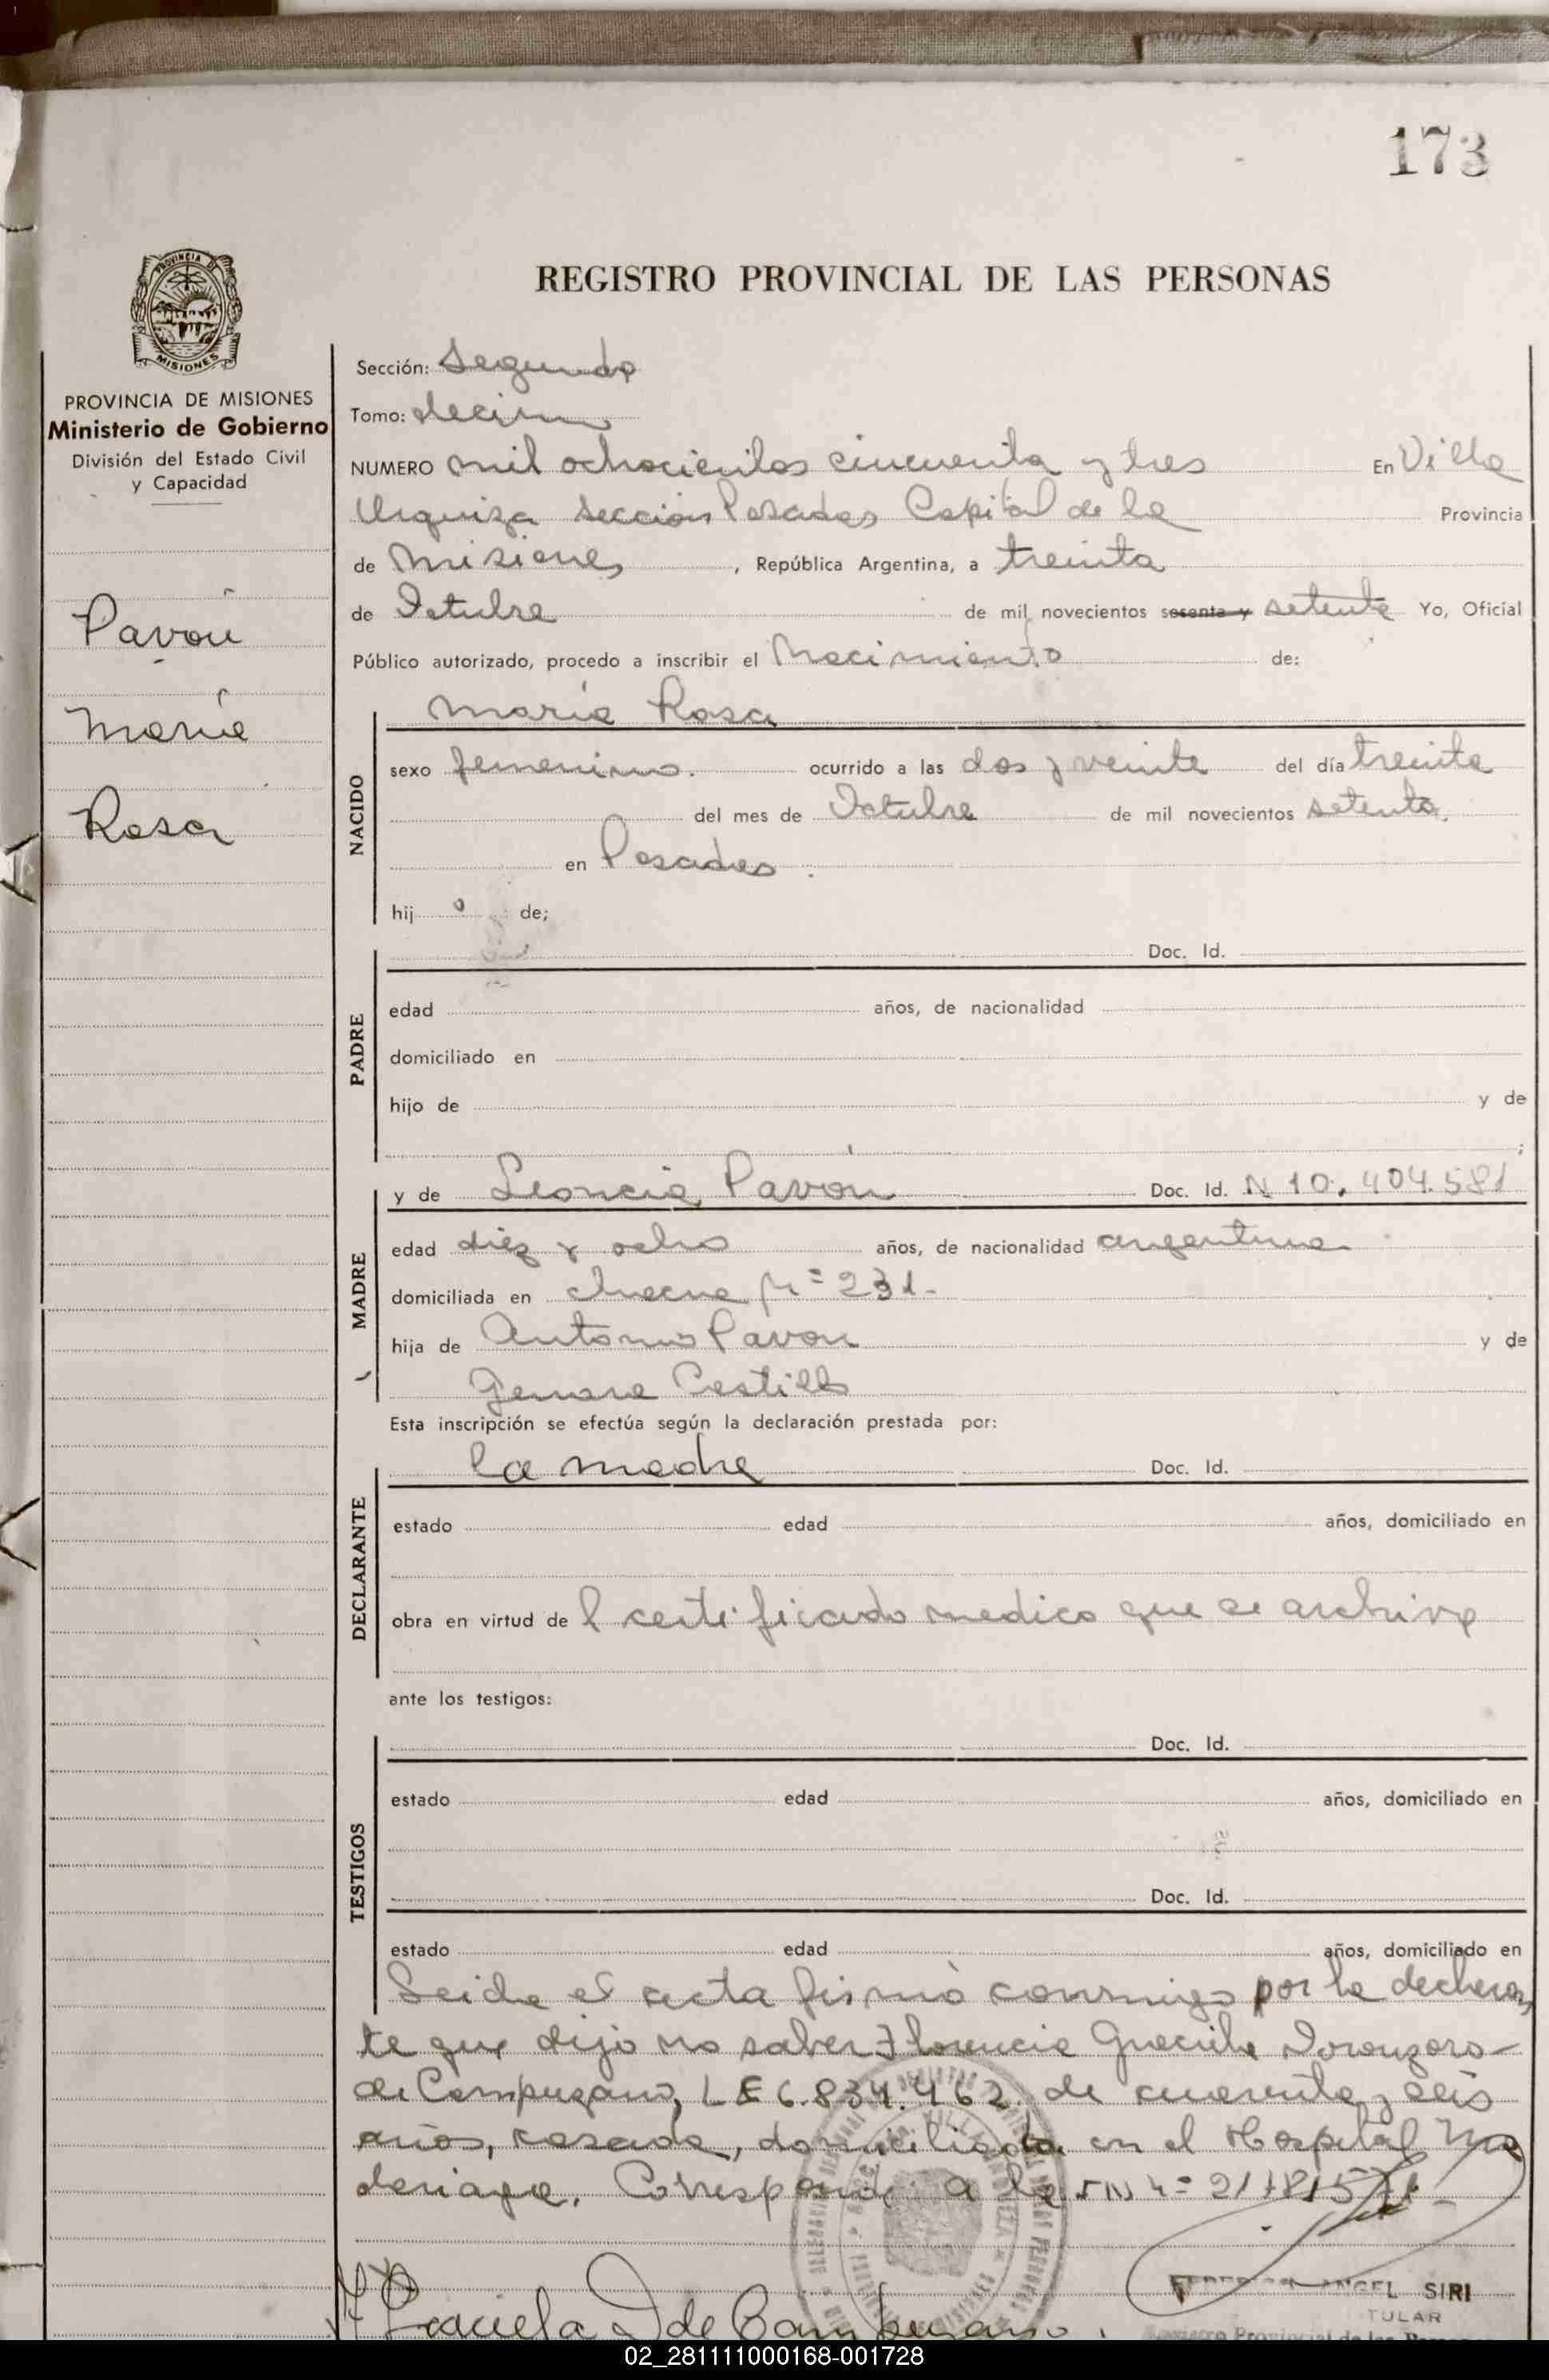 173
REGISTRO PROVINCIAL DE LAS PERSONAS
PROVINCIA DE MISIONES
MISIONES
PROVINCIA DE MISIONES
Ministerio de Gobierno
División del Estado Civil
y Capacidad
Pavón
María
Rosa
Sección: Segunda
Tomo: decimo
NUMERO mil ochocientos cincuenta y tres En Villa
Urquiza sección Posadas Capital de la Provincia
de Misiones, República Argentina, a treinta
de Octubre de mil novecientos sesenta y setenta Yo, Oficial
Público autorizado, procedo a inscribir el Nacimiento de:
María Rosa
NACIDO
sexo femenino. ocurrido a las dos y veinte del día treinta
del mes de Octubre de mil novecientos setenta.
en Posadas.
hij a de;
PADRE
Doc. Id.
edad años, de nacionalidad
domiciliado en
hijo de y de
;
MADRE
y de Leoncia Pavón Doc. Id. N 10.404.581
edad diez y ocho años, de nacionalidad argentina
domiciliada en chacra Nº 231.
hija de Antonio Pavon y de
Genara Castillo
Esta inscripción se efectúa según la declaración prestada por:
DECLARANTE
la madre Doc. Id.
estado edad años, domiciliado en
obra en virtud de l certificado medico que se archiva
ante los testigos:
TESTIGOS
Doc. Id.
estado edad años, domiciliado en
Doc. Id.
estado edad años, domiciliado en
Leida el acta firmó conmigo por la declaran
te que dijo no saber Florencia Graciela
de Campuzano, LE 6.834.462 de cuarenta y seis
años, casada, domiciliada en el Hospital Ma
dariaga. Corresponde a la
Graciela de Campuzano.
ANGEL SIRI
TULAR
Registro Provincial de las
02_281111000168-001728